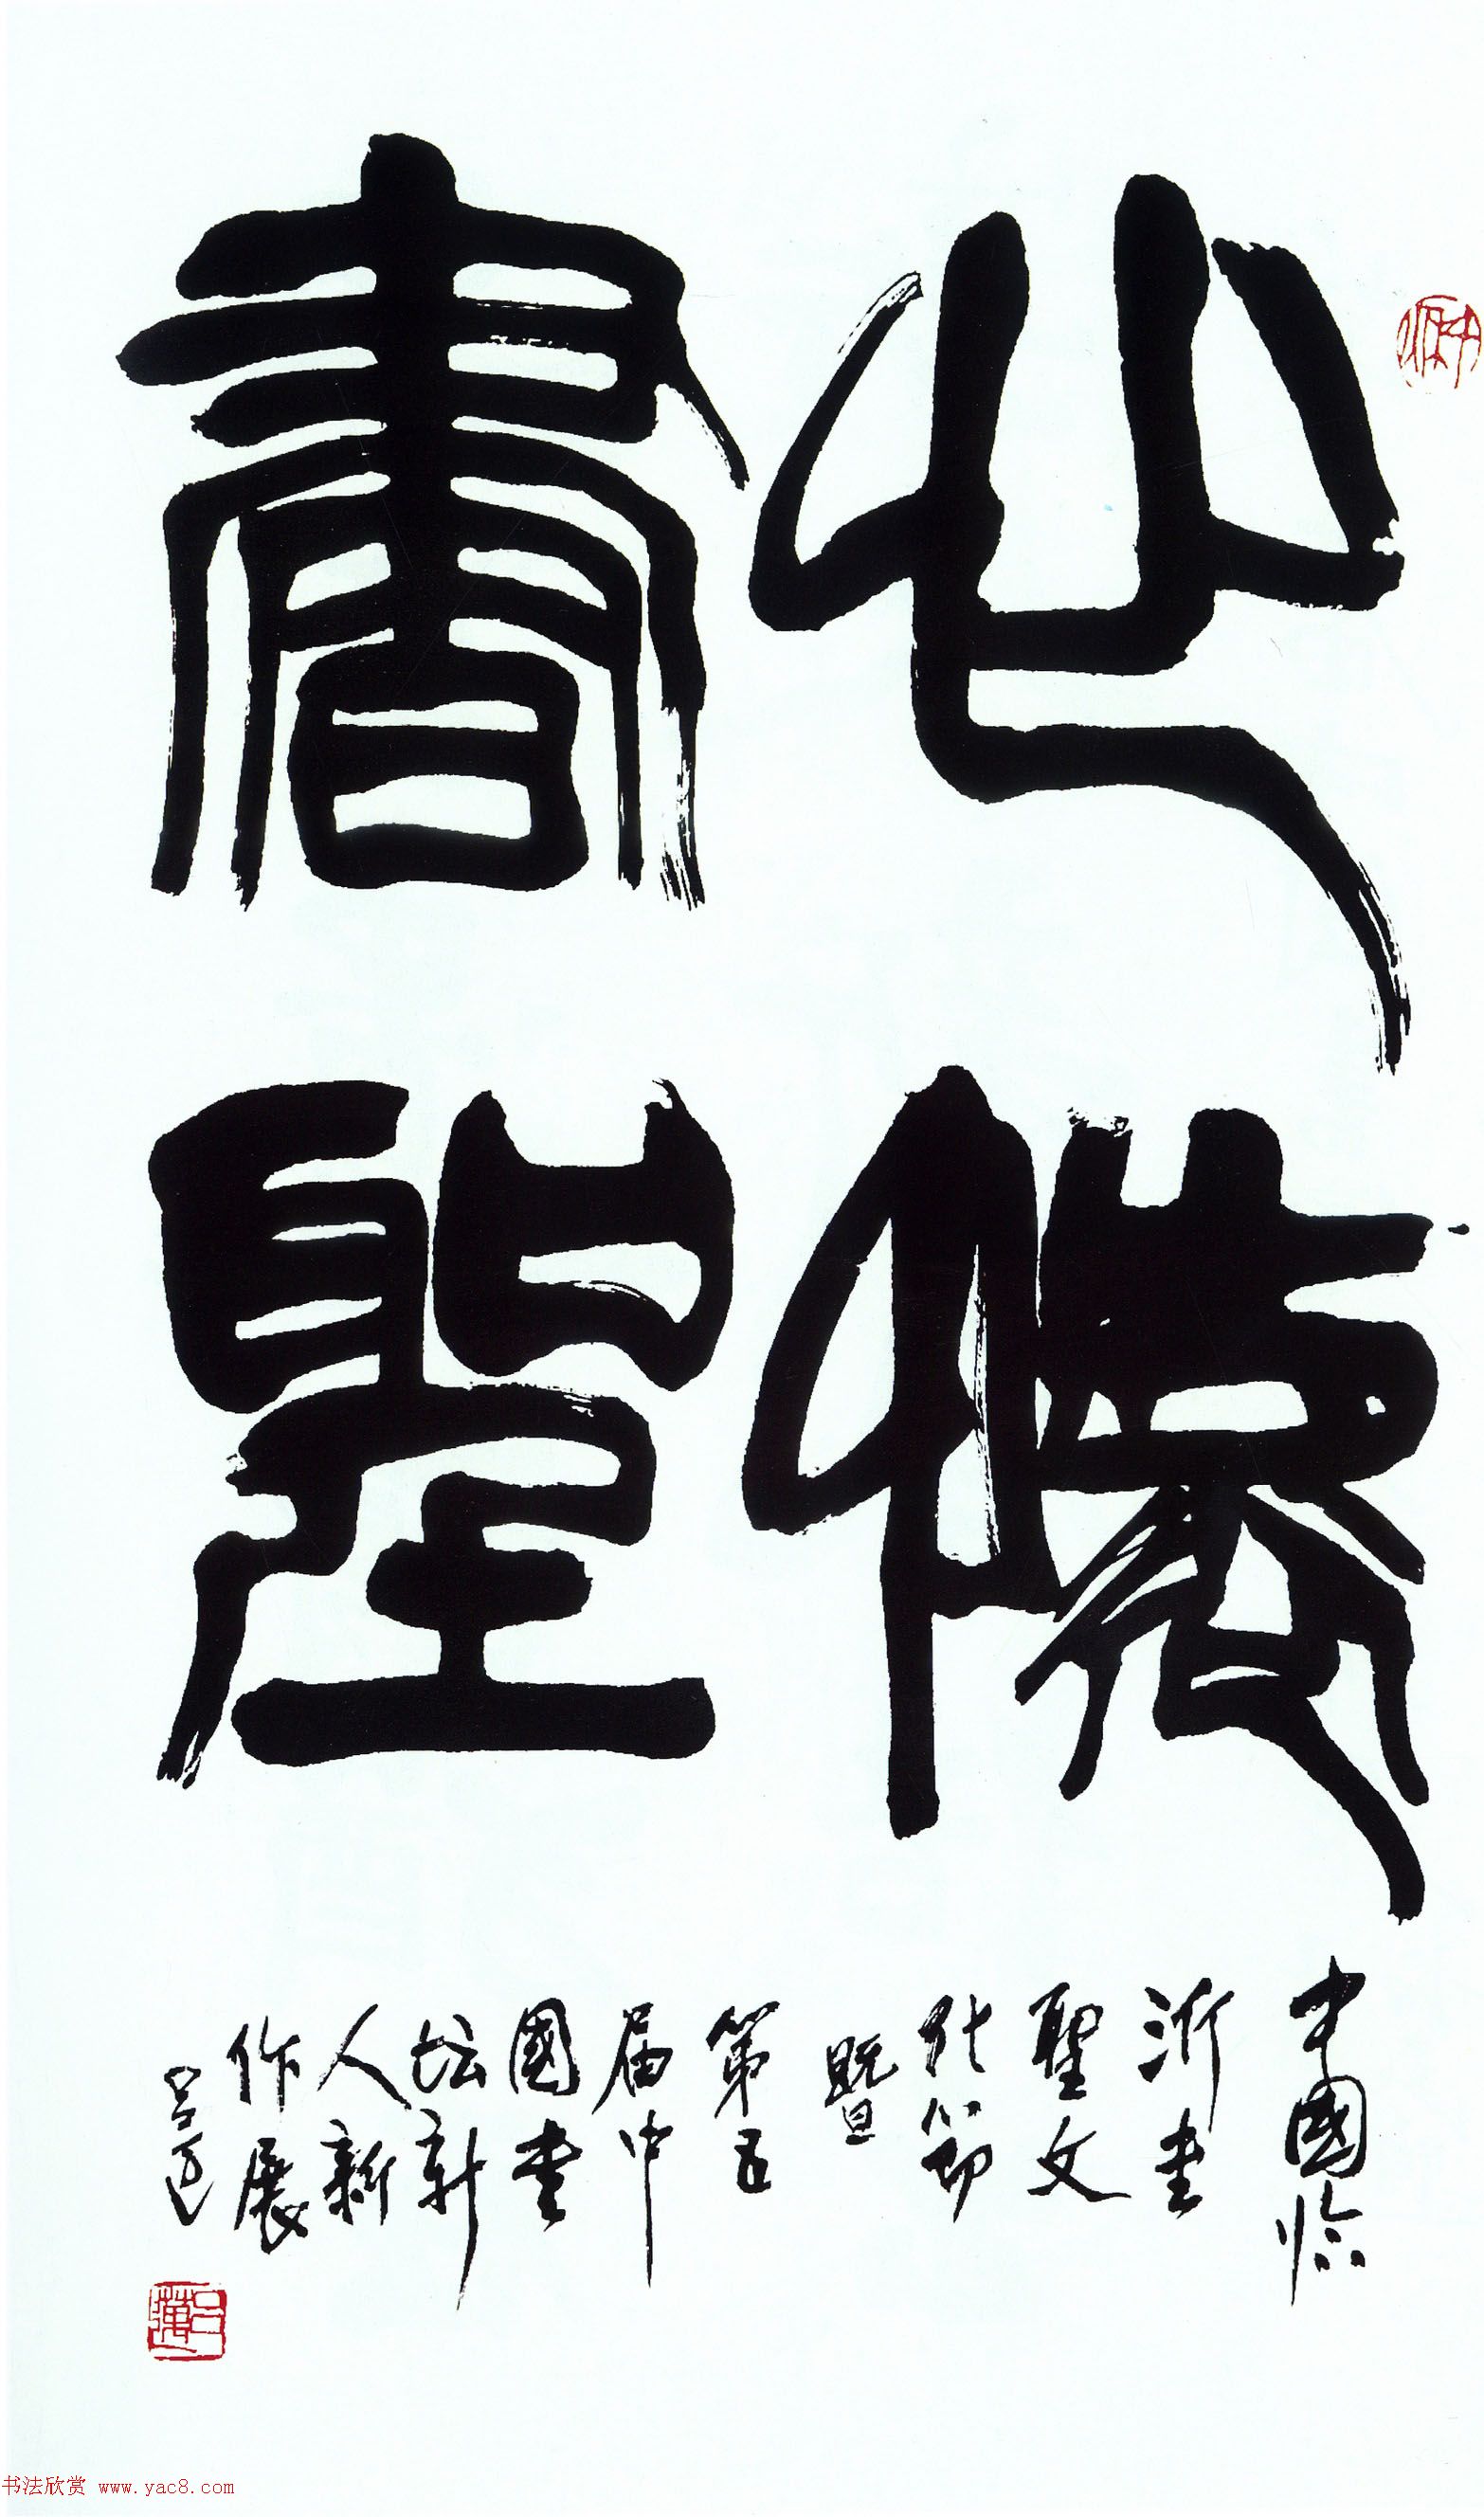 心懷
書聖
中國臨
沂書
聖文
化節
暨
第五
届中
國書
坛新
人新
作展
书法欣赏 www.yac8.com